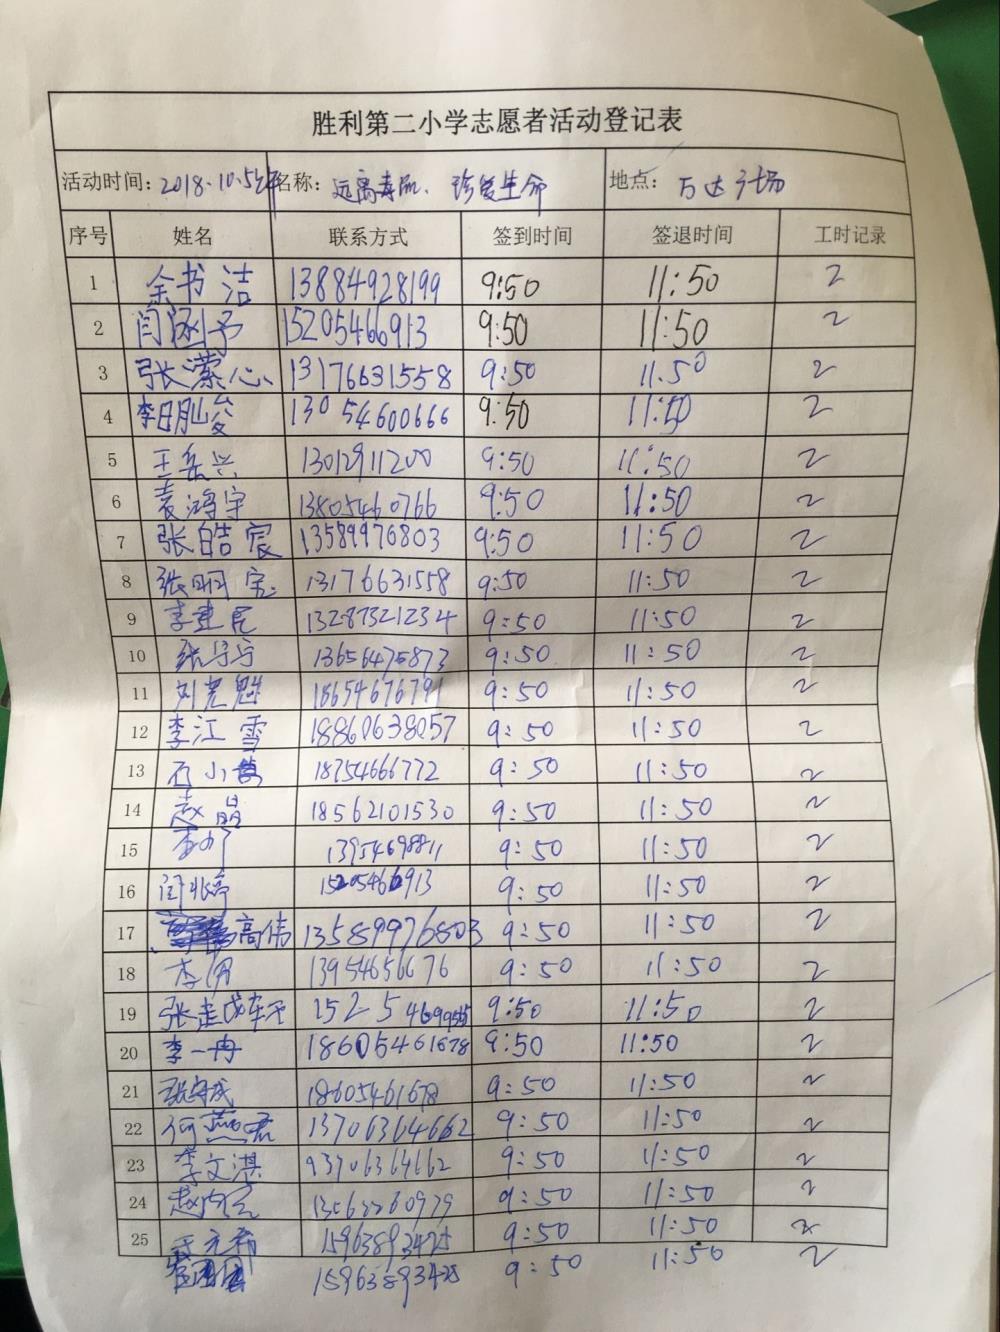 胜利第二小学志愿者活动登记表
活动时间：2018.10.5 名称：远离毒品、珍爱生命 地点：万达广场
序号 姓名 联系方式 签到时间 签退时间 工时记录
1 余书洁 13884928199 9:50 11:50 2
2 闫涵予 15205466913 9:50 11:50 2
3 张潆心 13176631558 9:50 11:50 2
4 13054600666 9:50 11:50 2
5 王岳兴 13012911200 9:50 11:50 2
6 袁鸿宇 13805460766 9:50 11:50 2
7 张皓宸 13589976803 9:50 11:50 2
8 张明宝 13176631558 9:50 11:50 2
9 李建民 13287321234 9:50 11:50 2
10 13656475873 9:50 11:50 2
11 刘光魁 18654676791 9:50 11:50 2
12 李江雪 18860638057 9:50 11:50 2
13 石小 18754666772 9:50 11:50 2
14 赵晶 18562101530 9:50 11:50 2
15 13954698811 9:50 11:50 2
16 15205466913 9:50 11:50 2
17 高伟 13589976803 9:50 11:50 2
18 李 13954656676 9:50 11:50 2
19 张 9:50 11:50 2
20 李一冉 18605461678 9:50 11:50 2
21 张守成 18605461678 9:50 11:50 2
22 何燕君 13706364662 9:50 11:50 2
23 李文淇 13706364662 9:50 11:50 2
24 赵 9:50 11:50 2
25 15963893425 9:50 11:50 2
15963893425 9:50 11:50 2